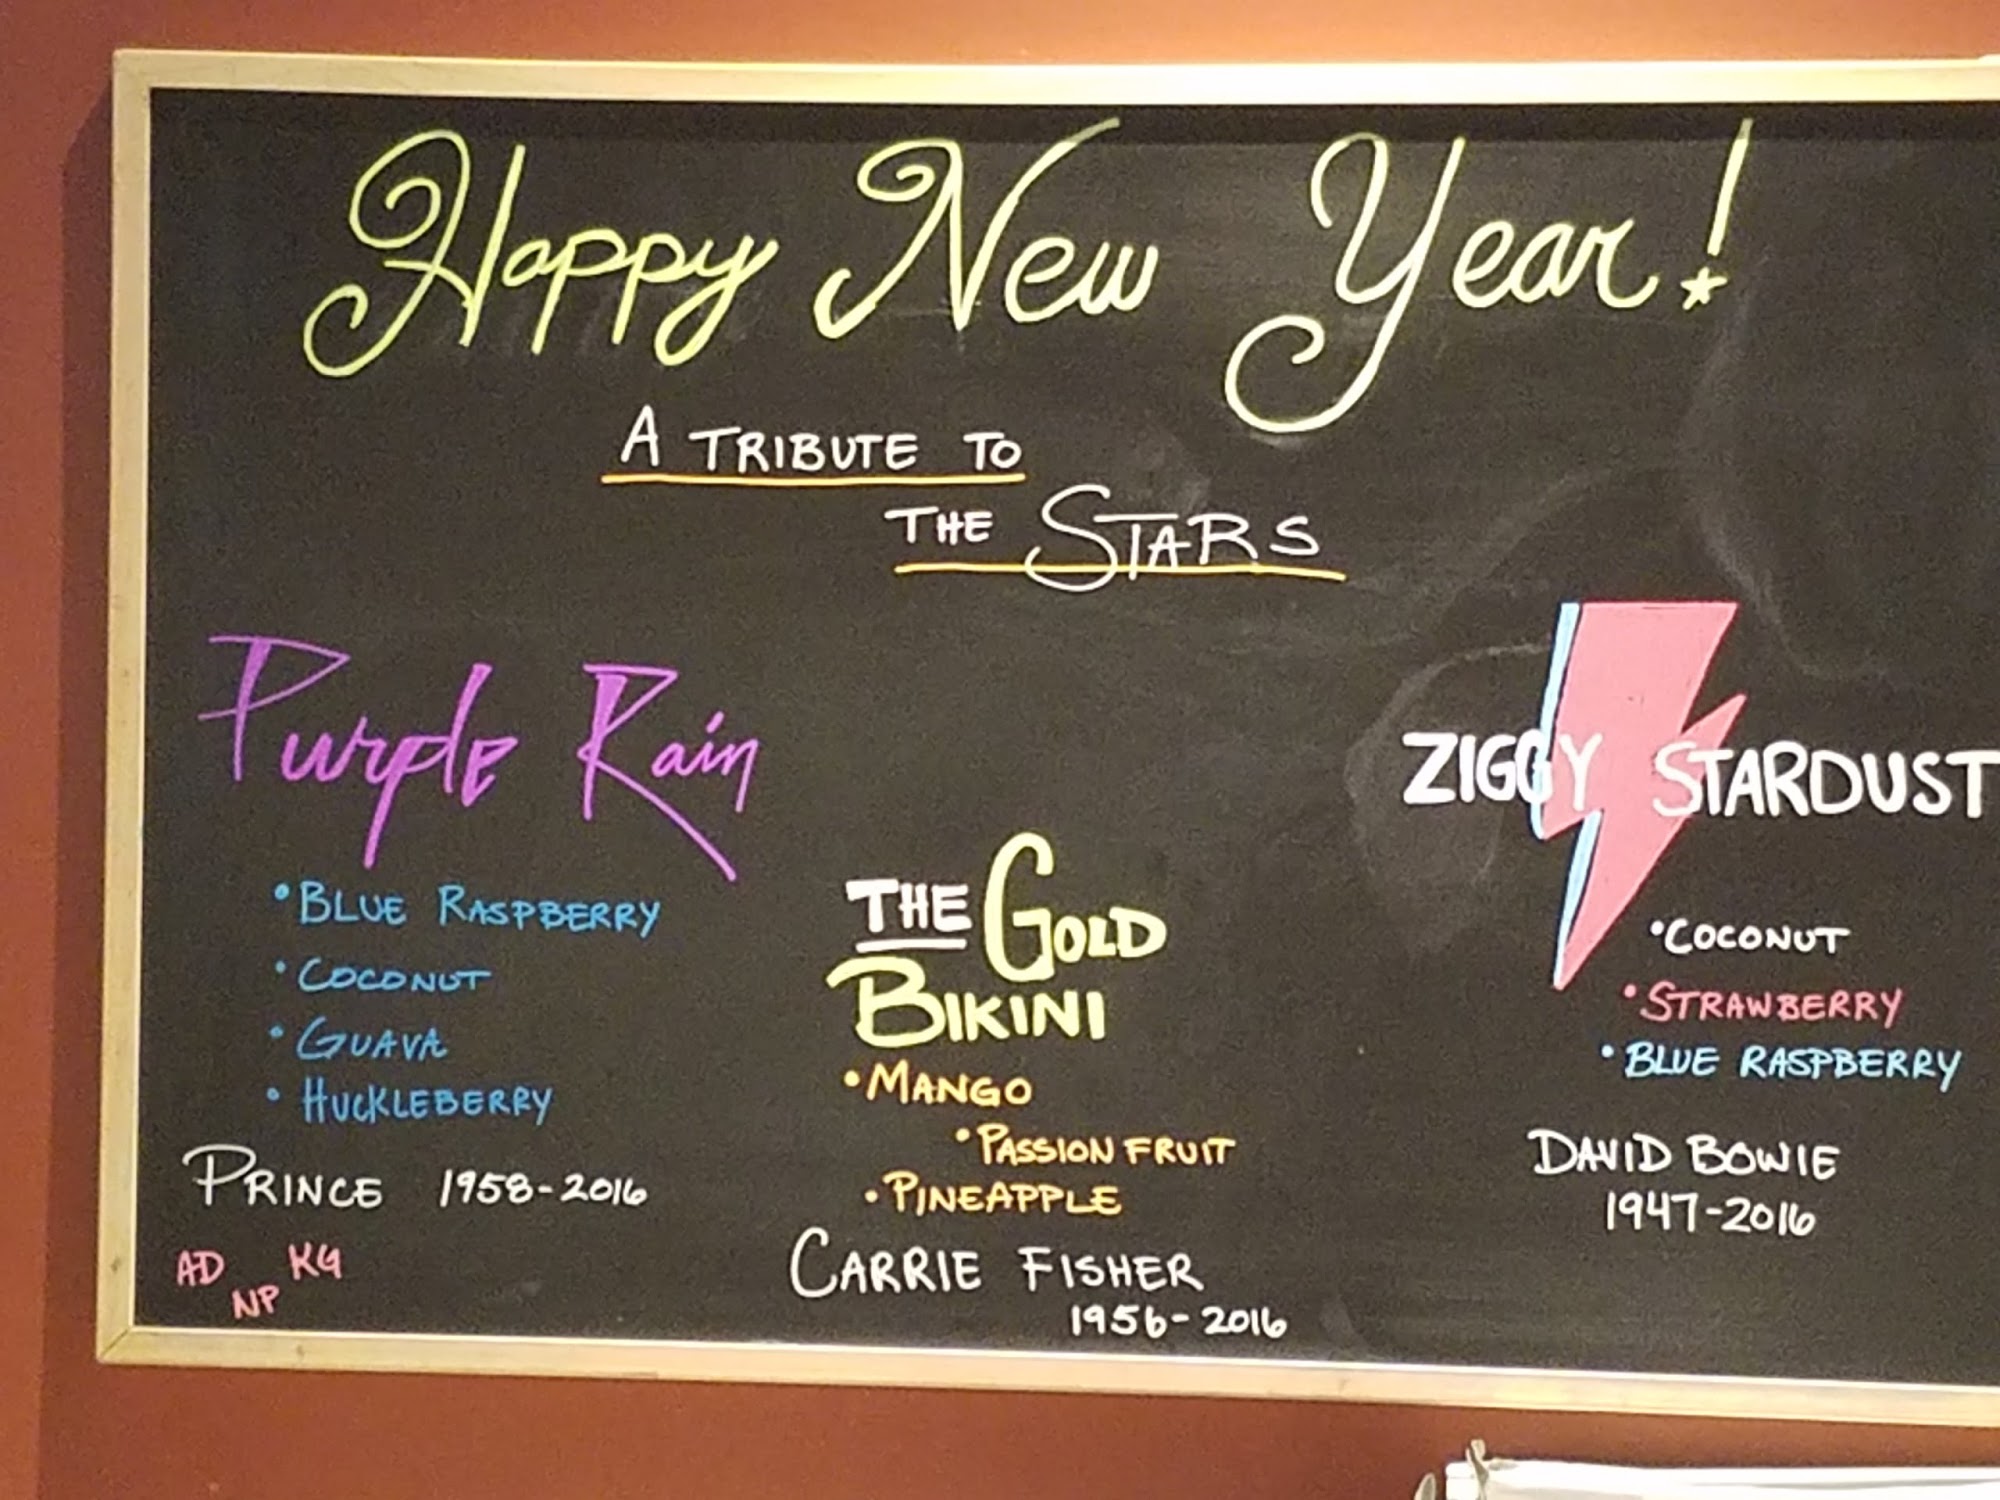 Happy New Year!
A TRIBUTE TO
THE STARS
Purple Rain
• BLUE RASPBERRY
• COCONUT
• GUAVA
• HUCKLEBERRY
PRINCE 1958-2016
AD KG
NP
THE GOLD
BIKINI
• MANGO
• PASSION FRUIT
• PINEAPPLE
CARRIE FISHER
1956-2016
ZIGGY STARDUST
• COCONUT
• STRAWBERRY
• BLUE RASPBERRY
DAVID BOWIE
1947-2016